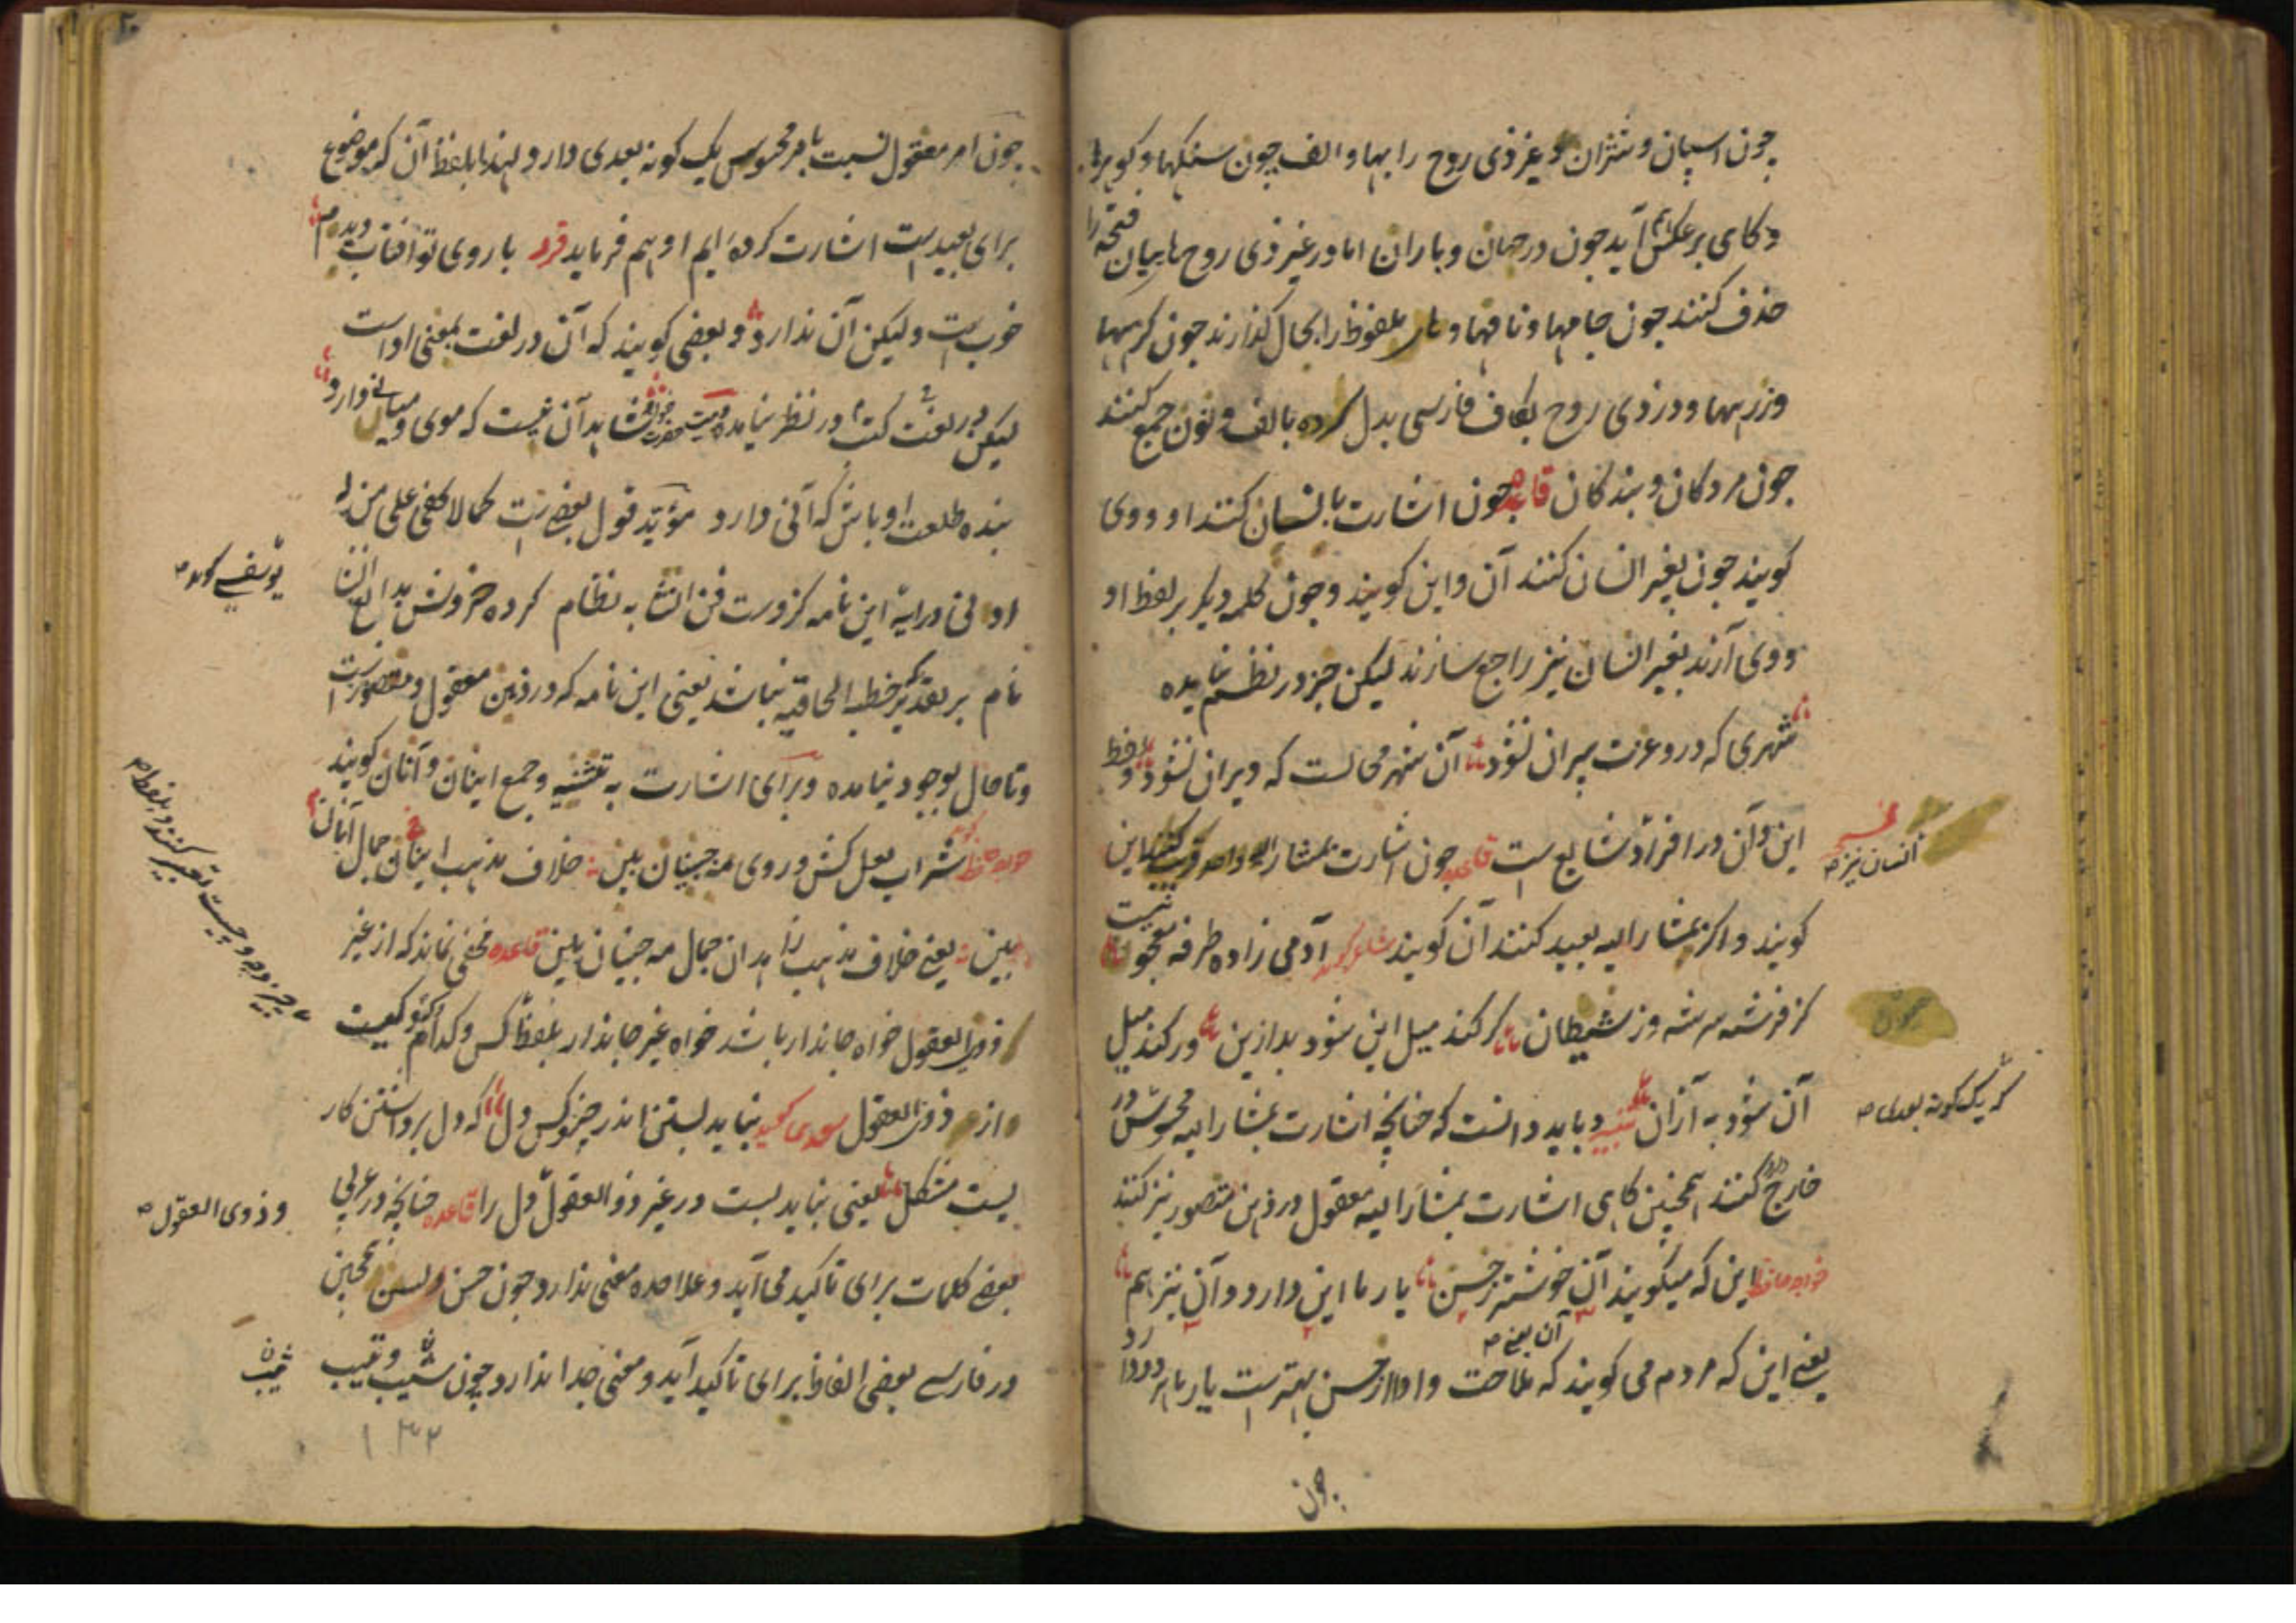 چون اسپان و شتران و غیر ذی روح را بها و الف چون سنگها و کوهها
و گاهی برعکس آید چون درختان و باران اما در غیر ذی روح ها بیان فتحه را
حذف کنند چون جامها و نامها و های ملفوظ را بحال گذارند چون گرهها
و زرهها و در ذی روح بکاف فارسی بدل کرده بالف و نون جمع کنند
چون مردگان و بندگان قاعده چون اشارت بانسان کنند او و وی
گویند چون بغیر انسان کنند آن و این گویند و چون کلمه دیگر بر لفظ او
و وی آرند بغیر انسان نیز راجع سازند لیکن جز در نظم نیامده
شهری که درو عزت پیران نشود آن شهر محالست که ویران نشود و لفظ
این و آن در افراد شایع است قاعده چون اشارت بمشار الیه واحد قریب کنند این
گویند و اگر بمشار الیه بعید کنند آن گویند آدمی زاده طرفه معجونیست
کز فرشته سرشته وز شیطان گر کند میل این شود بد ازین ور کند میل
آن شود به ازان تنبیه و باید دانست که چنانچه اشارت بمشار الیه محسوس در
خارج کنند همچنین گاهی اشارت بمشار الیه معقول در ذهن متصور نیز کنند
خواجه حافظ این که میگویند آن خوشتر ز حسن یار ما این دارد و آن نیز هم
یعنی این که مردم می گویند که ملاحت و ادا از حسن بهتر است یار ما هر دو دارد
آن یعنی
چون
انسان نیز
چون
که یک گونه بعدی
چون امر معقول نسبت بامر محسوس یک گونه بعدی دارد لهذا بلفظ آن که موضوع
برای بعید است اشارت کرده ایم او هم فرماید فرد با روی تو آفتاب دیدم
خوب است ولیکن آن ندارد و بعضی گویند که آن در لغت بمعنی ادا است
لیکن در لغت کتب در نظر نیامده شاهد آن نیست که موی و میانی دارد
بنده طلعت او باش که آنی دارد مؤید قول بعضی است کما لا یخفی علی من له
ادنی درایة این نامه کزوست فن انشا به نظام کرده خردش بدایع انشا
نام بر تقدیر خطبه الحاقیه نباشد یعنی این نامه که در ذهن معقول و متصور است
و تا حال بوجود نیامده و برای اشارت به تثنیه و جمع اینان و آنان گویند
خواجه حافظ شراب لعل کش و روی مه جبینان بین خلاف مذهب اینان جمال آنان
بین یعنی خلاف مذهب زاهدان جمال مه جبینان بین قاعده مخفی نماند که از غیر
ذوی العقول خواه جاندار باشد خواه غیر جاندار بلفظ کس و کدام و کیست
از ذوی العقول سعدی گوید نباید بستن اندر چیز و کس دل که دل برداشتن کار
یست مشکل یعنی نباید بست در غیر ذوالعقول دل را قاعده چنانچه در عربی
بعضی کلمات برای تاکید می آید و علاحده معنی ندارد چون حسن و بسن همچنین
در فارسی بعضی الفاظ برای تاکید آید و معنی جدا ندارد چون شیب و تیب
یوسفی گوید
بچیز و چه و چیست تعبیر کنند و بلفظ
و ذوی العقول
۱۳۲